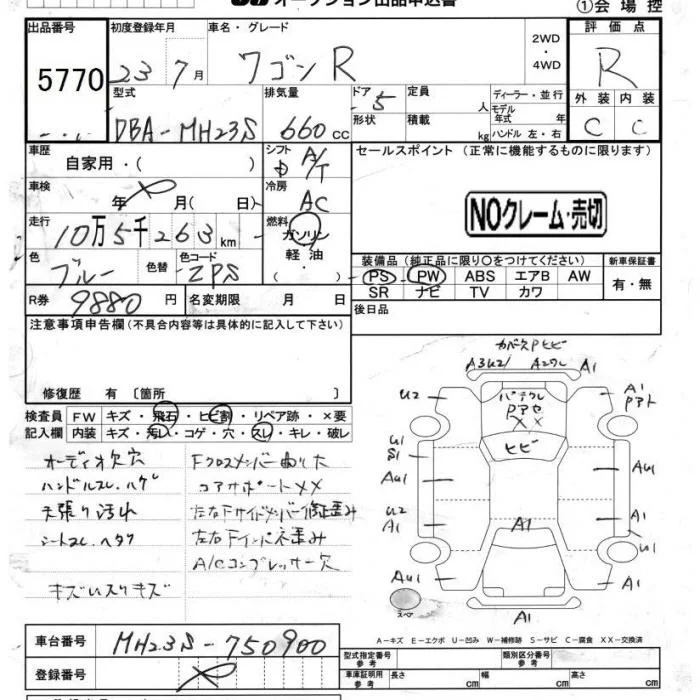 オークション出品申込書
①会場控
出品番号 初度登録年月 車名・グレード 評価点
5770 23 7月 ワゴンR 2WD ・4WD R
型式 排気量 ドア 5 定員 人 ディーラー・並行 外装 内装
DBA-MH23S 660cc 形状 積載 kg モデル年式 年 ハンドル 左・右 C C
車歴 自家用・( ) シフト 中 A/T セールスポイント (正常に機能するものに限ります)
車検 年 月( 日) 冷房 AC
NOクレーム・売切
走行 10万5千263km 燃料 ガソリン
軽油・( )
色 ブルー 色替 色コード ZPS
装備品 (純正品に限り○をつけてください) 新車保証書
PS PW ABS エアB AW 有・無
SR ナビ TV カワ
R券 9880円 名変期限 月 日 後日品
注意事項申告欄(不具合内容等は具体的に記入して下さい)
修復歴 有 〔箇所 〕
検査員 FW キズ・飛石・ヒビ割・リペア跡・×要
記入欄 内装 キズ・汚れ・コゲ・穴・スレ・キレ・破レ
オーディオ欠穴 Fクロスメンバー曲りた
ハンドルスレ.ハゲ コアサポートXX
天張り汚れ 左右Fサイドメンバー修正歪み
シートスレ.ヘタり 左右Fインパネ歪み
A/Cコンプレッサー欠
キズいスリキズ
カバー欠Pヒビ
A3U2 A2ワレ A1
U2 A1
Pアト
バテクレ
Pアセ
XX
ヒビ
U1
S1
AU1 AU1
U2
A1 A1 A1
U1
AU1 A1
スペア
A1
A-キズ E-エクボ U-凹み W-補修跡 S-サビ C-腐食 XX-交換済
車台番号 MH23S-750900
登録番号
型式指定番号 参考 類別区分番号 参考
車庫証明用 参考 長さ cm 幅 cm 高さ cm